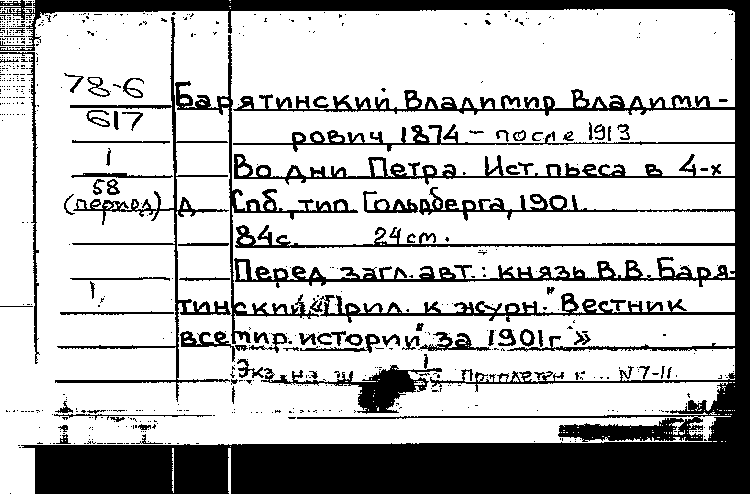 78-6
617
1
58
(период) д
1,
Барятинский, Владимир Владими-
рович, 1874 - после 1913
Во дни Петра. Ист. пьеса в 4-х
Спб., тип. Гольдберга, 1901.
84с. 24 см.
Перед загл. авт.: князь В.В. Баря-
тинский. «Прил. к журн. "Вестник
всемир. истории" за 1901г.»
Экз. на ш 1
58 Приплетен к ... N 7-11.